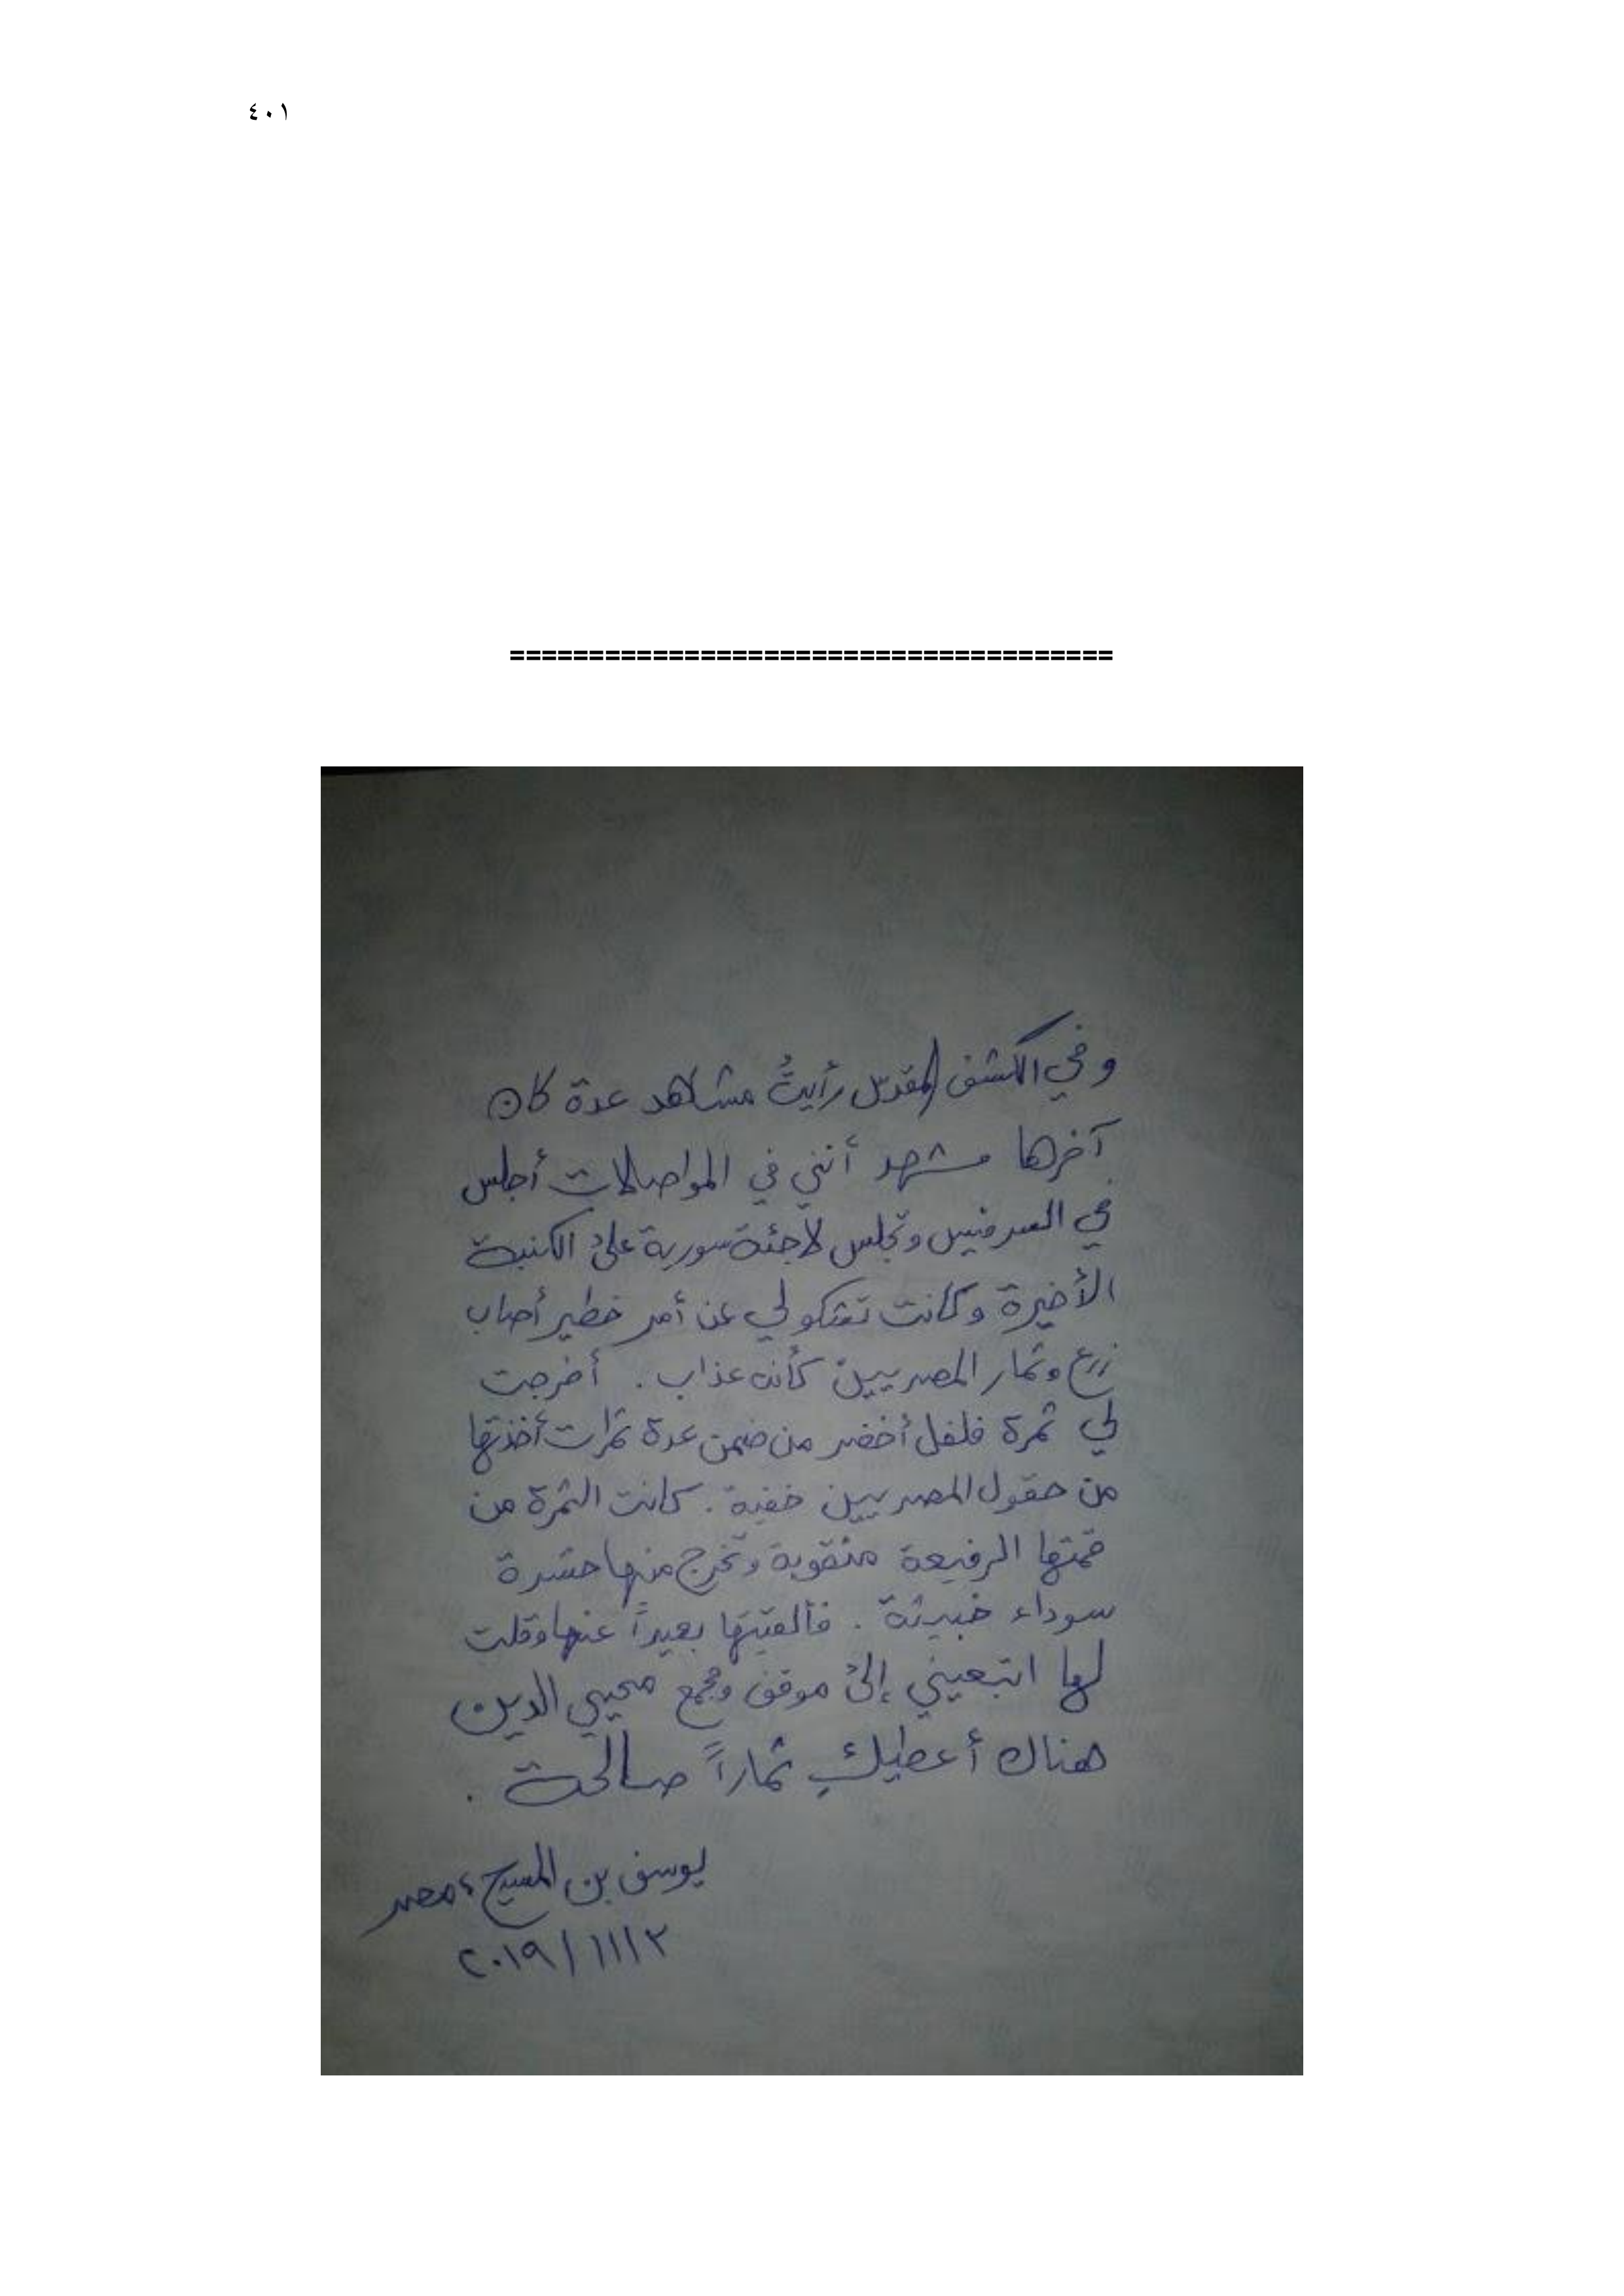 ٤٠١
======================================
وفي الكشف المقدس رأيتُ مشاهد عدة كان
آخرها مشهد أنني في المواصلات أجلس
في السرفيس وتجلس لاجئة سورية على الكنبة
الأخيرة وكانت تشكو لي عن أمر خطير أصاب
زرع وثمار المصريين كأنه عذاب . أخرجت
لي ثمرة فلفل أخضر من ضمن عدة ثمرات أخذتها
من حقول المصريين خفية . كانت الثمرة من
قمتها الرفيعة مثقوبة وتخرج منها حشرة
سوداء خبيثة . فألقيتها بعيداً عنها وقلت
لها اتبعيني إلى موقف ومجمع محيي الدين
هناك أعطيكِ ثماراً صالحة .
يوسف بن المسيح ، مصر
٢٠١٩/١١/٢